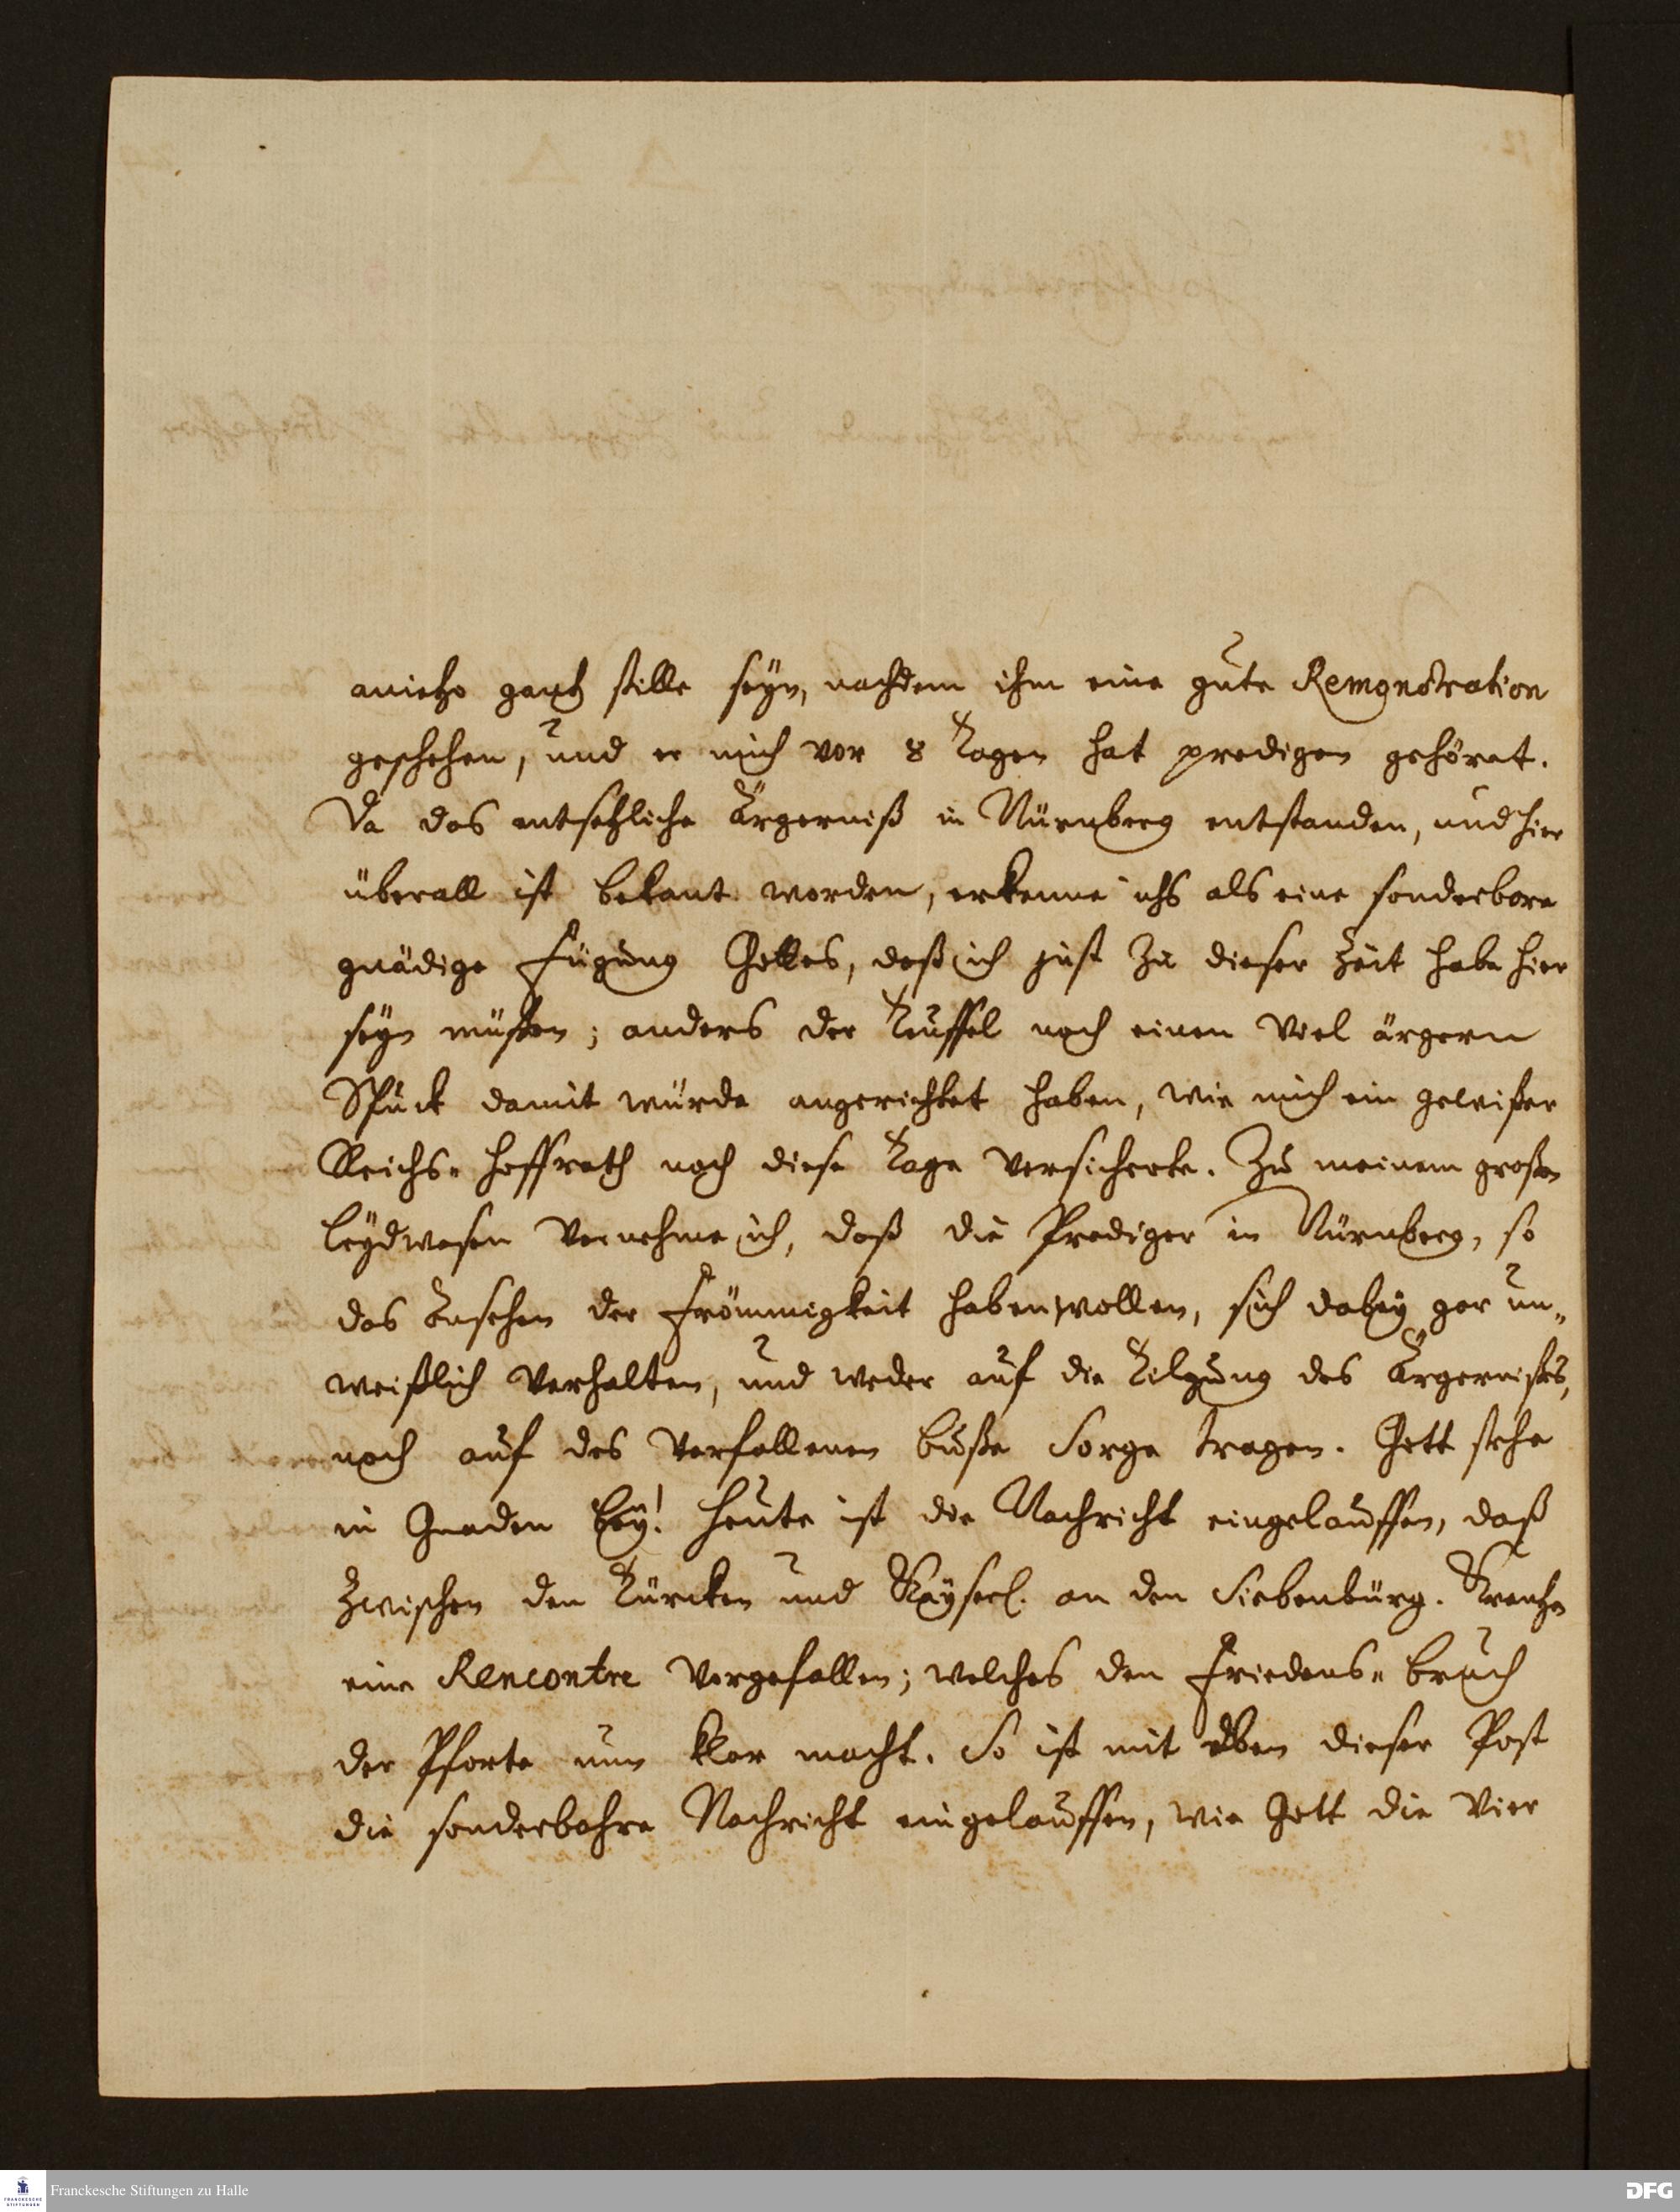 anietzo gantz stille seyn, nachdem ihm eine gute Remonstration
geschehen, und er mich vor 8 Tagen hat predigen gehöret.
Da das entsetzliche Ärgerniß in Nürnberg entstanden, und hier
überall ist bekant worden, erkenne ichs als eine sonderbare
gnädige Fügung Gottes, daß ich just zu dieser Zeit habe hier
seyn müßen; anders der Teuffel noch einen viel ärgern
Spuck damit würde angerichtet haben, wie mich ein gewißer
Reichs-Hoffrath noch diese Tage versicherte. Zu meinem großen
Leydwesen vernehme ich, daß die Prediger in Nürnberg, so
das Ansehen der Frömmigkeit haben wollen, sich dabey gar un-
weißlich verhalten, und weder auf die Tilgung des Ärgernißes,
noch auf des Verfallenen Buße Sorge tragen. Gott stehe
in Gnaden bey! Heute ist die Nachricht eingelauffen, daß
zwischen den Türcken und Kayserl. an den Siebenbürg. Grentzen
eine Rencontre vorgefallen; welches den Friedens-Bruch
der Pforte nun klar macht. So ist mit eben dieser Post
die sonderbahre Nachricht eingelauffen, wie Gott die vier
Franckesche Stiftungen zu Halle
FRANCKESCHE
STIFTUNGEN
DFG